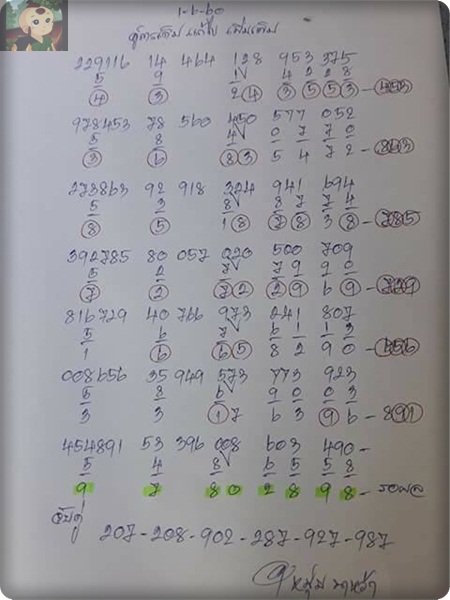 1-6-60
229116 14 464 128 953 375
5 9 1 4 2 8
4 3 2 4 3 5 5 3 - 453
978453 78 560 450 577 052
5 8 4 0 7 7 0
3 6 8 3 5 4 7 2 - 863
273863 92 918 324 941 694
5 3 8 8 7 7 4
8 5 1 8 7 8 3 8 - 785
392785 80 057 020 500 709
5 2 7 7 9 9 0
7 2 7 2 2 9 6 9 - 729
816729 40 766 973 241 807
5 6 7 6 1 1 3
1 6 6 5 8 2 9 0 - 656
008656 35 949 573 773 923
5 8 6 9 0 0 3
3 3 1 7 6 3 9 6 - 891
454891 53 396 008 603 490 -
5 4 8 6 5 5 8
9 7 8 0 2 8 9 8 - รอผล
จับคู่
207-208-902-287-927-987